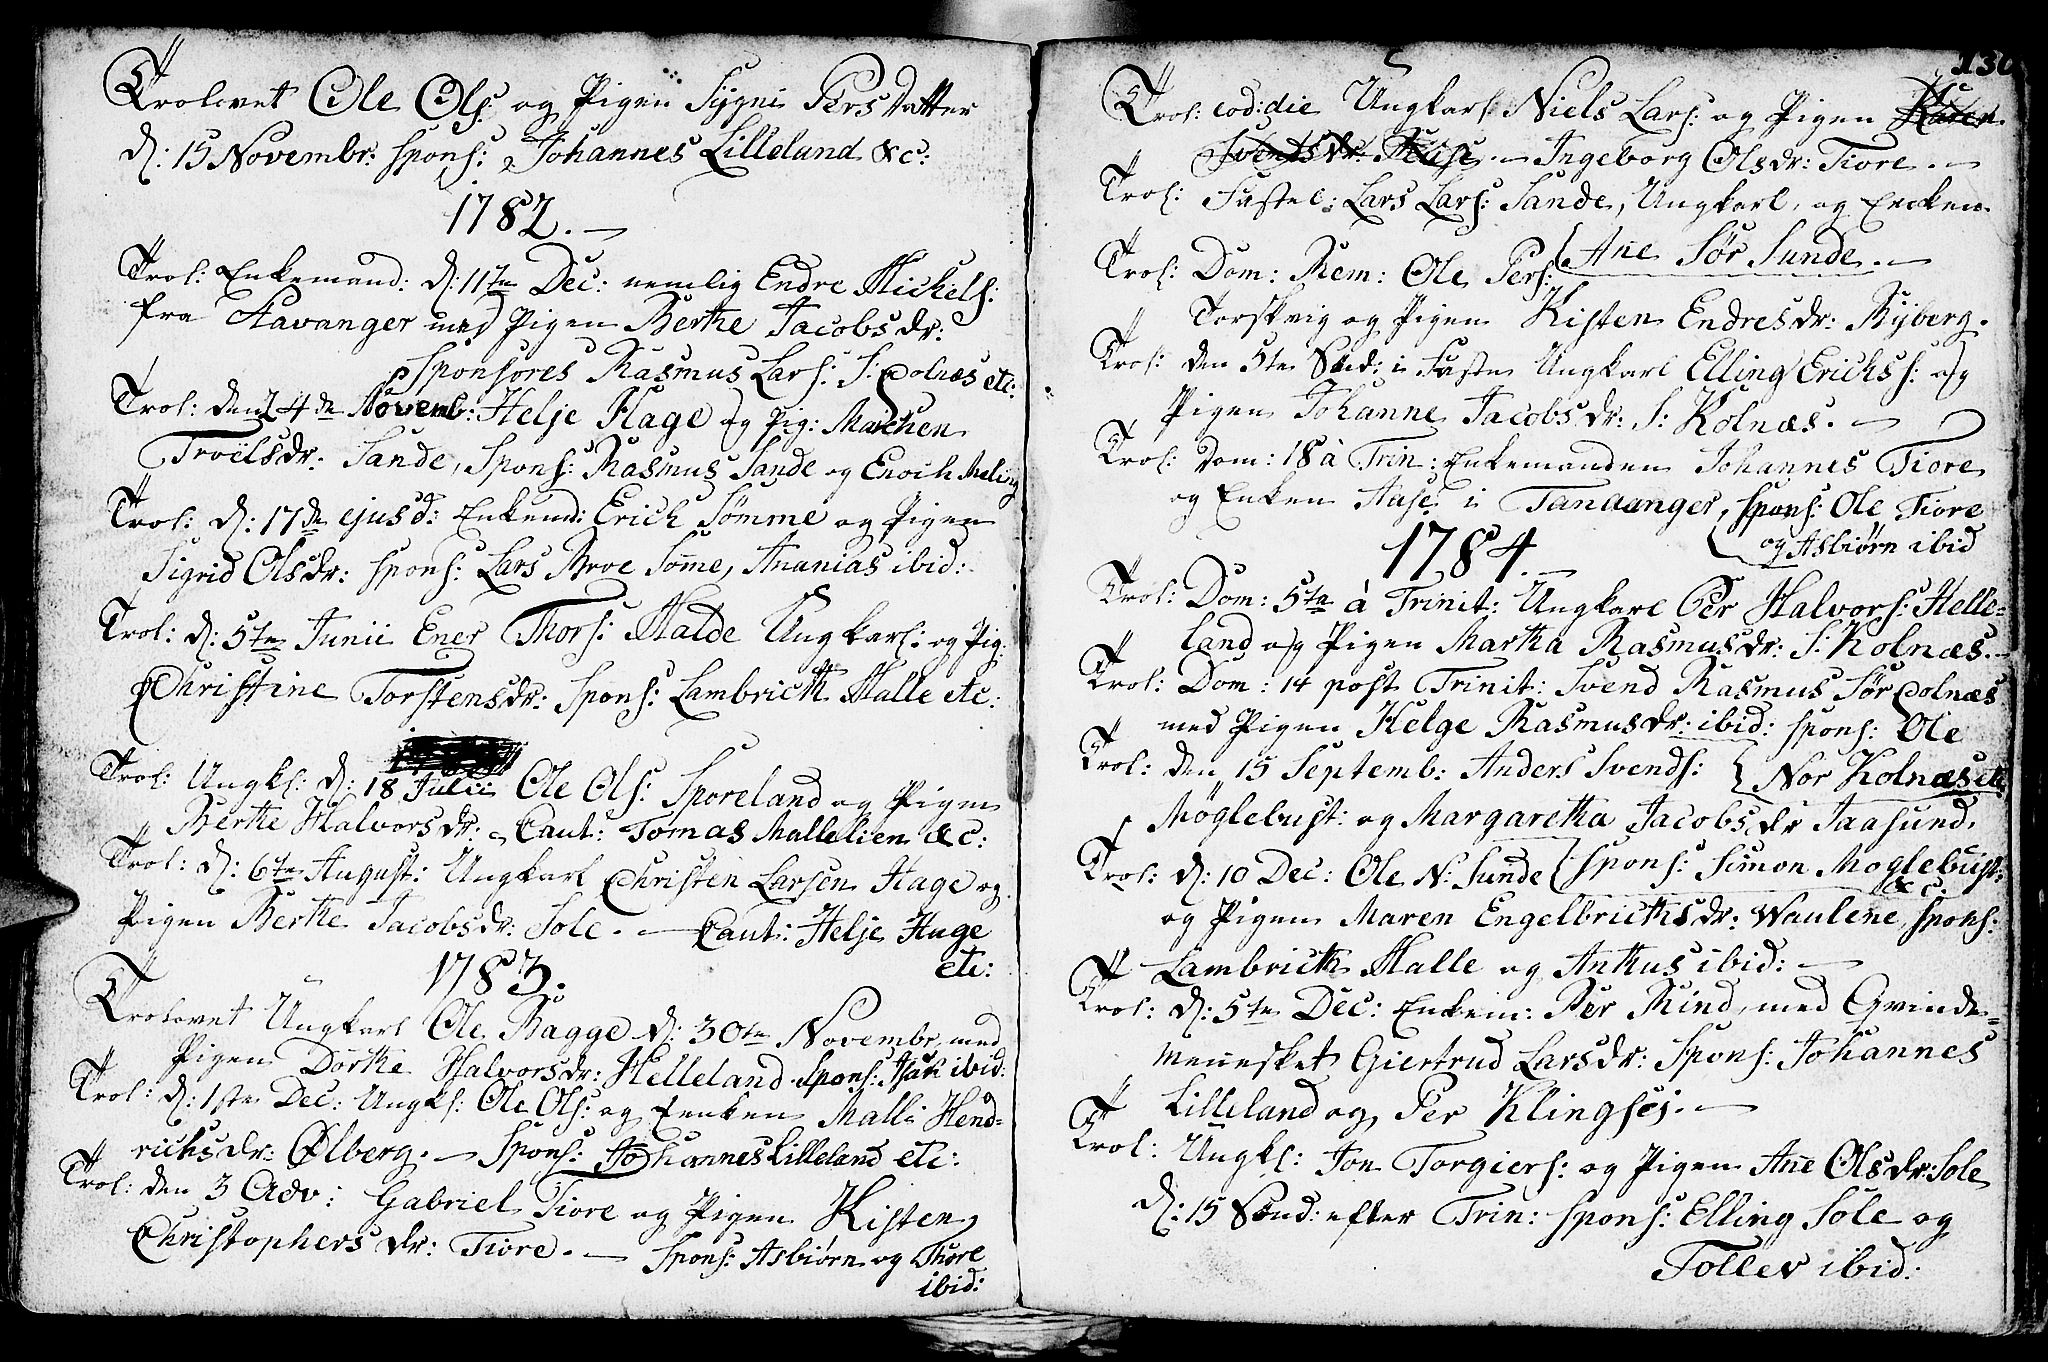 Trolovet Ole Ols: og Pigen Sygni Pers datter
d: 15 Novembr: spons: Johannes Lillelund &c:
1782. —
Trol: Enkemand: d: 11te Dec: nemlig Endre Mickels:
fra Stavanger med Pigen Berthe Jacobsdr:
Sponsores Rasmus Lars: S: Colnæs etc:
Trol: den 24de Novemb: Helje Hage og Pig: Marchen
Troëlsdr: Sande, Spons: Rasmus Sande og Enoch Meling
Trol: d: 17de ejusd: Enkemd: Erich Sömme og Pigen
Sigrid Olsdr: spons: Lars Broe Some, Ananias ibid:
Trol: d: 5te Junii Ener Thors: Halde Ungkarl: og Pig:
Christine Torstensdr: Spons: Lambricth Halle etc:
Trol: Ungkl: d: 18 Julii Ole Ols: Sporeland og Pigen
Berthe Halvorsdr: - Caut: Tomas Mallelien &c:
Trol: d: 6te August: Ungkarl Christen Larsen Hage og
Pigen Berthe Jacobsdr: Sole. — Caut: Helje Huge
etc:
1783.
Trolovet Ungkarl Ole Bagge d: 30te Novembr. med
Pigen Dorthe Halvorsdr: Helleland Spons: Isak ibid:
Trol: d: 1ste Dec: Ungk: Ole Ols: og Enken Malli Hend=
richsdr: Ølberg. — Spons: Johannes Lilleland etc:
Trol: den 3 Adv: Gabriel Tiore og Pigen Kisten
Christophersdr: Tiore. — Spons: Asbiørn og Thore
ibid:
130
Trol: eod: die Ungkarl: Niels Lars: og Pigen Karen
Svendsdr: Ingeborg Olsdr: Tiore. —
Trol: Fastel: Lars Lars: Sande, Ungkarl, og Encken
Ane Sør Sunde. —
Trol: Dom: Rem: Ole Pers:
Torskvig og Pigen Kisten Endresdr: Ryberg.
Trol: den 5te Sönd: i Faste Ungkarl Elling Erichs: og
Pigen Johanne Jacobsdr: S: Kolnæs. —
Trol: Dom: 18 à Trin: Enkemanden Johannes Tiore
og Enken Aase i Tanaanger, spons: Ole Tiore
og Asbiørn ibid
1784. —
Trol: Dom: 5ta à Trinit: Ungkarl Per Halvors: Helle=
land og Pigen Martha Rasmusdr: S: Kolnæs. —
Trol: Dom: 14 post Trinit: Svend Rasmus Sör Colnæs
med Pigen Helge Rasmusdr: ibid: spons: Ole
Nor Kolnæs etc
Trol: den 15 Septemb: Anders Svends:
Möglebust: og Margaretha Jacobsdr Jaasund.
Spons: Simon Moglebust:
&c.
Trol: d: 10 Dec: Ole N: Sunde
og Pigen Maren Engelbricthsdr: Waulene, spons:
Lambricth Halle og Anthus ibid: —
Trol: d: 5te Dec: Enkem: Per Rind, med Qvinde=
mennesket Giertrud Larsdr: Spons: Johannes
Lilleland og Per Klingsej. —
Trol: Ungkl: Jon Torgiers: og Pigen Ane Olsdr: Sole
d: 15 Sönd: efter Trin: spons: Elling Sole og
Tollev ibid: